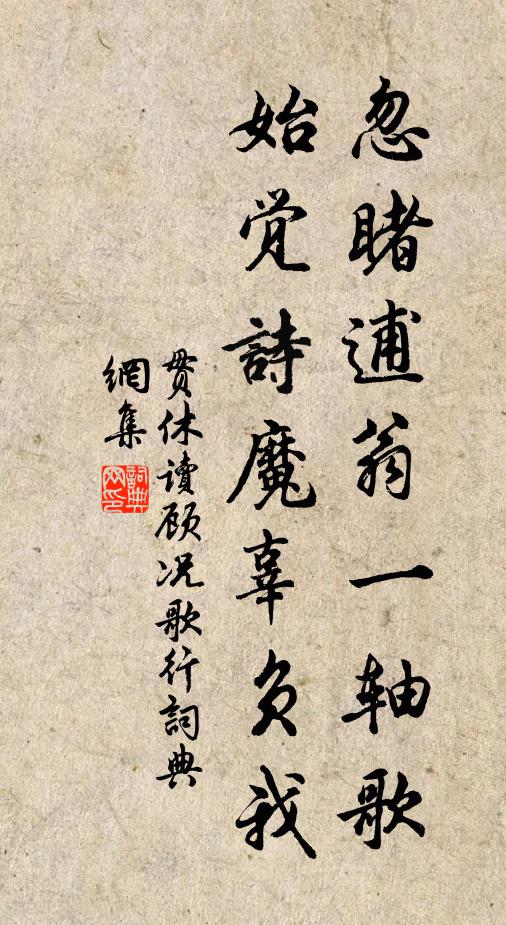 忽睹逋翁一轴歌
始觉詩魔辜负我
贯休讀顾况歌行詞典
網集
詞典
网印